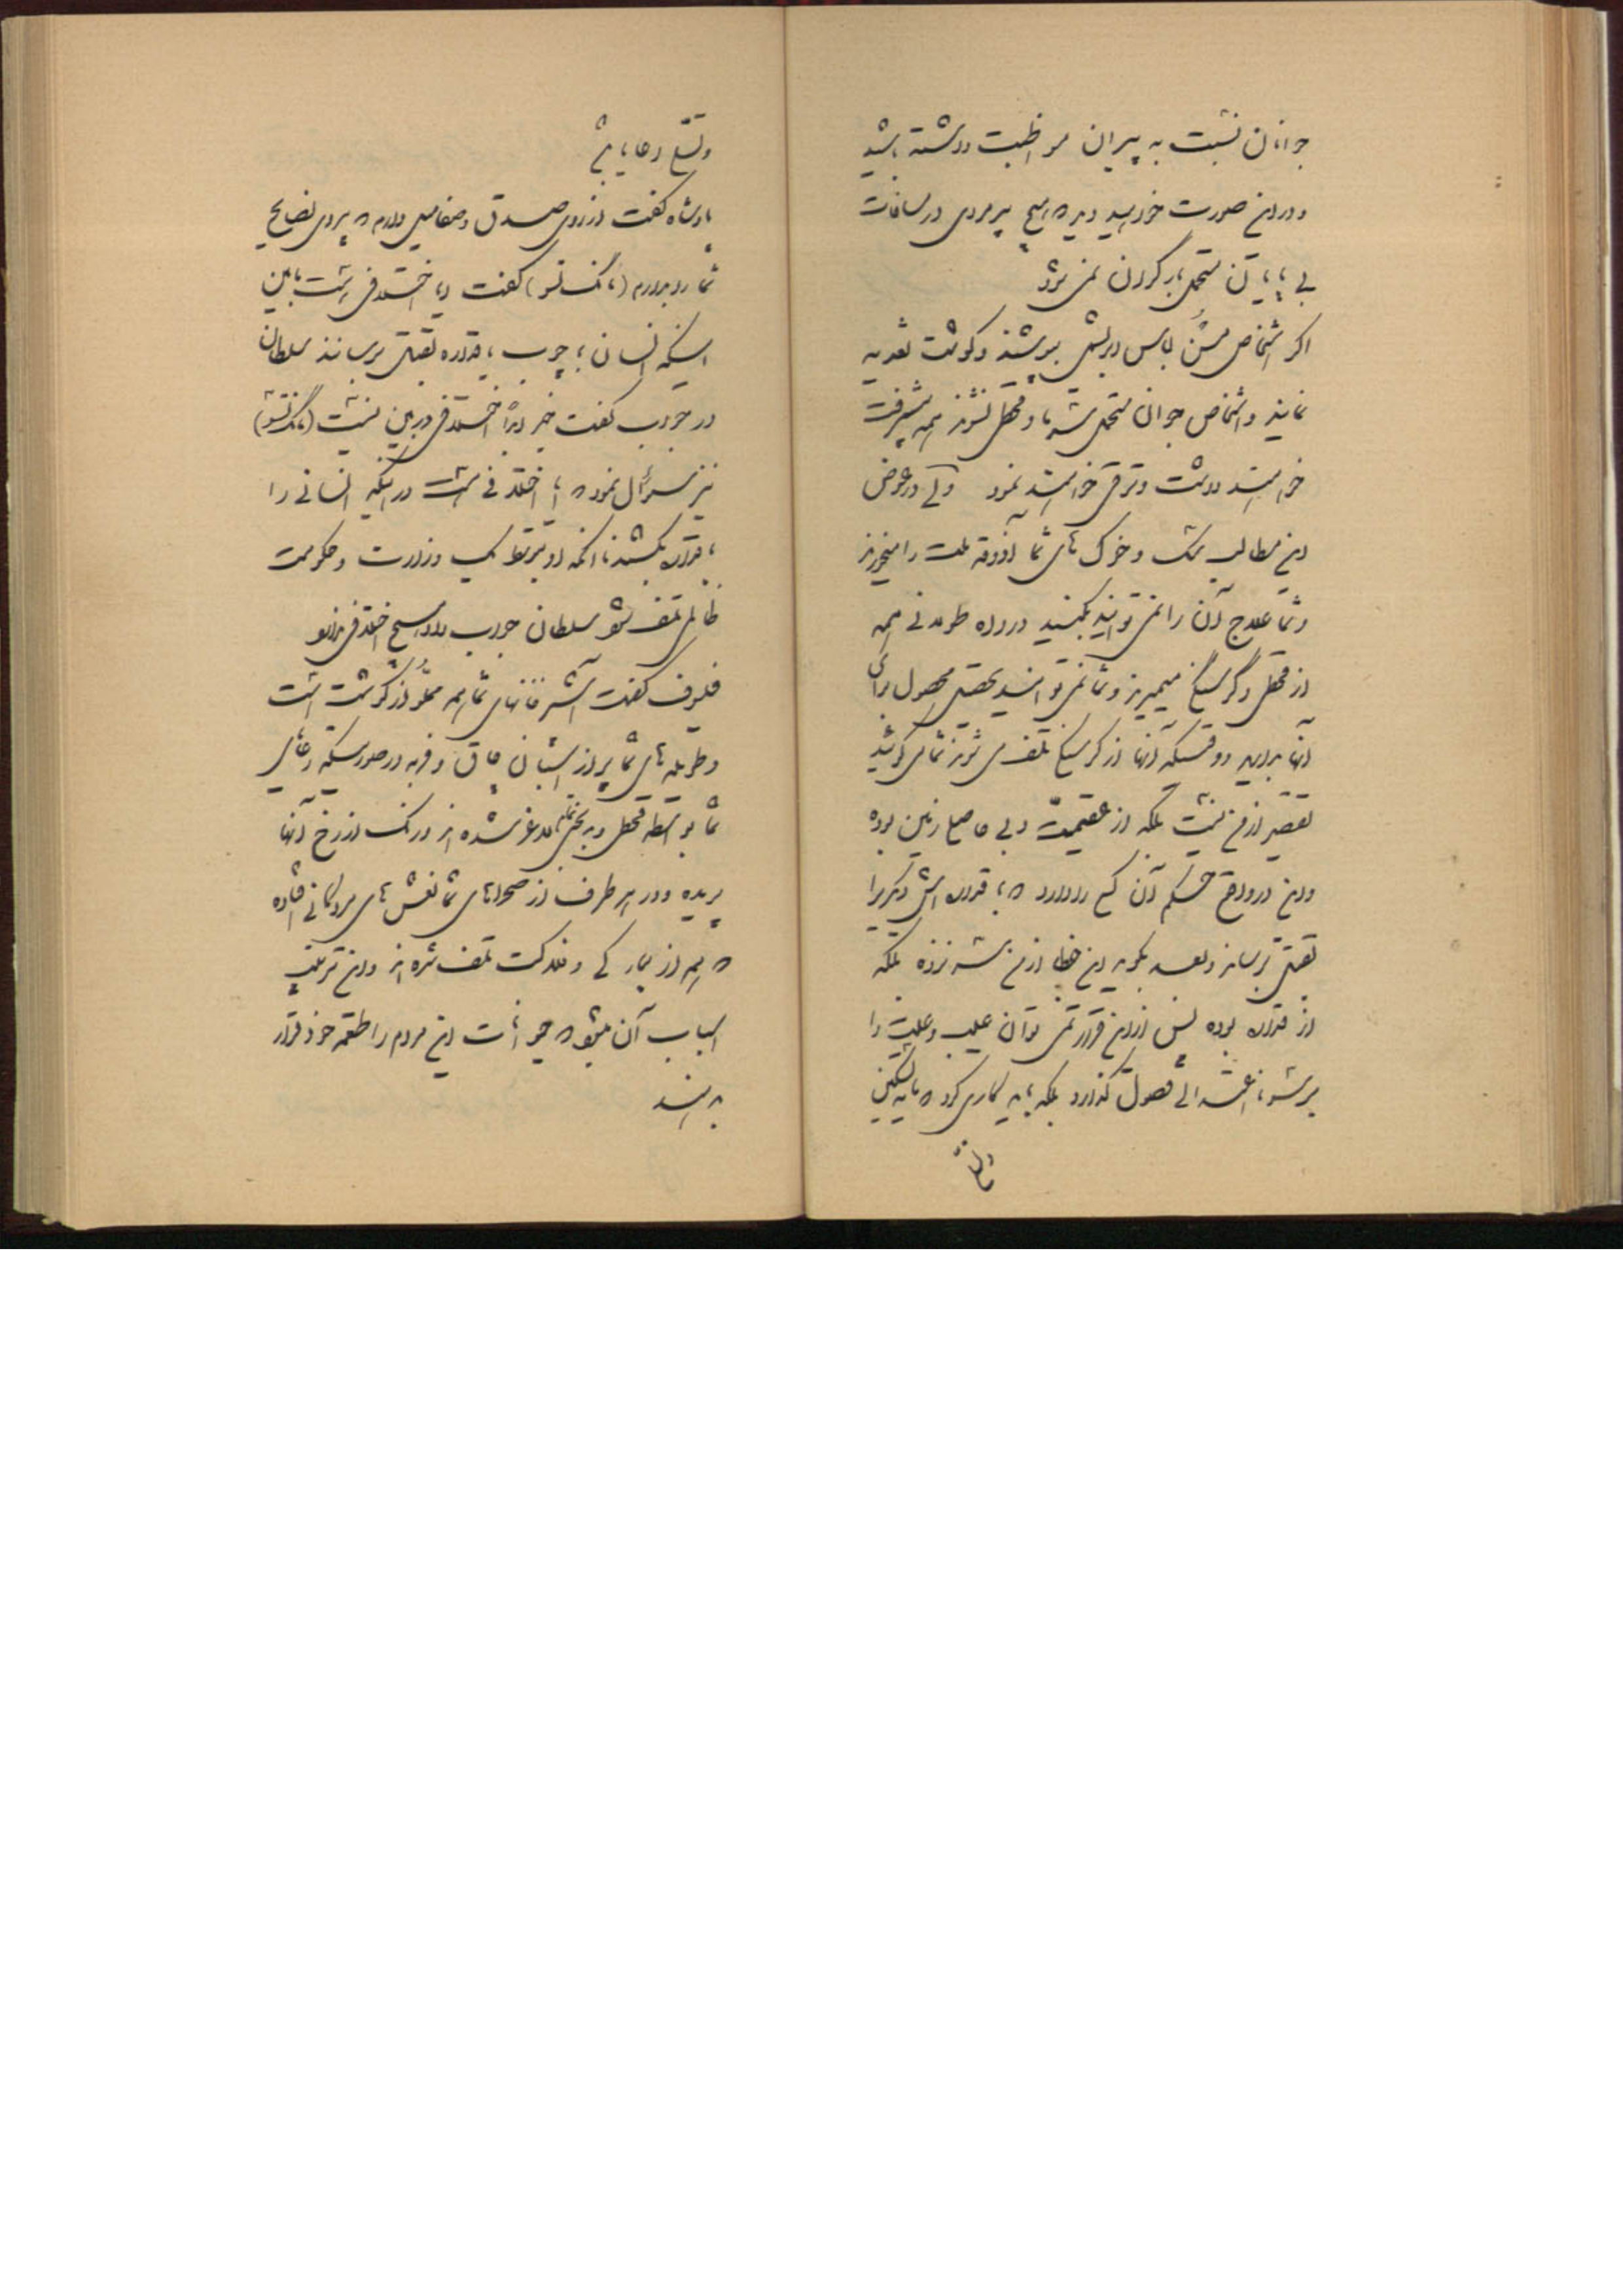 جوانان نسبت به پیران مواظبت داشته باشید
و در این صورت خواهید دید که هیچ پیرمردی در مسافات
بی پایان متحمل بار گران نمی شود
اگر اشخاص مسن لباس ابریشمی بپوشند و گوشت تغذیه
نمایند و اشخاص جوان متحمل سرما و قحطی نشوند همه پیشرفت
خواهند داشت و ترقی خواهند نمود ولی در عوض
این مطالب سگ و خوک های شما آذوقه ملت را میخورند
و شما علاج آن را نمی توانید بکنید در راه طولانی همه
از قحطی و گرسنگی میمیرند و شما نمی توانید تحصیل محصول برای
آنها بدارید و وقتیکه آنها از گرسنگی تلف می شوند شما می گوئید
تقصیر از من نیست بلکه از عقیمیت و بی حاصلی زمین بوده
و این در واقع حکم آن کسی را دارد که با قداره اش دیگری را
بقتل برساند و بعد بگوید این خطا از من سر نزده بلکه
از قداره بوده پس از این قرار نمی توان عیب و علت را
بر سوء اغتشاش فصول گذارد بلکه باید کاری کرد که مایه تسکین
خاطر
و تسلی رعایا باشد
پادشاه گفت از روی صدق و صفا میل دارم که پیروی نصایح
شما را بدارم (مانگ تسو) گفت آیا اختلافی است مابین
اینکه انسان با چوب یا قداره بقتل برسانند سلطان
در جواب گفت خیر ابداً اختلافی در بین نیست (مانگ تسو)
نیز سؤال نمود که آیا اختلافی است در اینکه انسانی را
با قداره بکشند یا آنکه او بتوسط یک وزارت و حکومت
ظالم تلف شود سلطان جواب داد هیچ اختلافی ندارد
فیلسوف گفت آشپزخانهای شما همه مملو از گوشت است
و طویله های شما پر از اسبان چاق و فربه در صورتیکه رعایای
شما بواسطه قحطی و بدبختی تمام لاغر شده اند و رنگ از رخ آنها
پریده و در هر طرف از صحراهای شما نعش های مردمانی افتاده
که هم از بیمارگی و فلاکت تلف شده اند و این ترتیب
اسباب آن میشود که حیوانات این مردم را طعمه خود قرار
بدهند